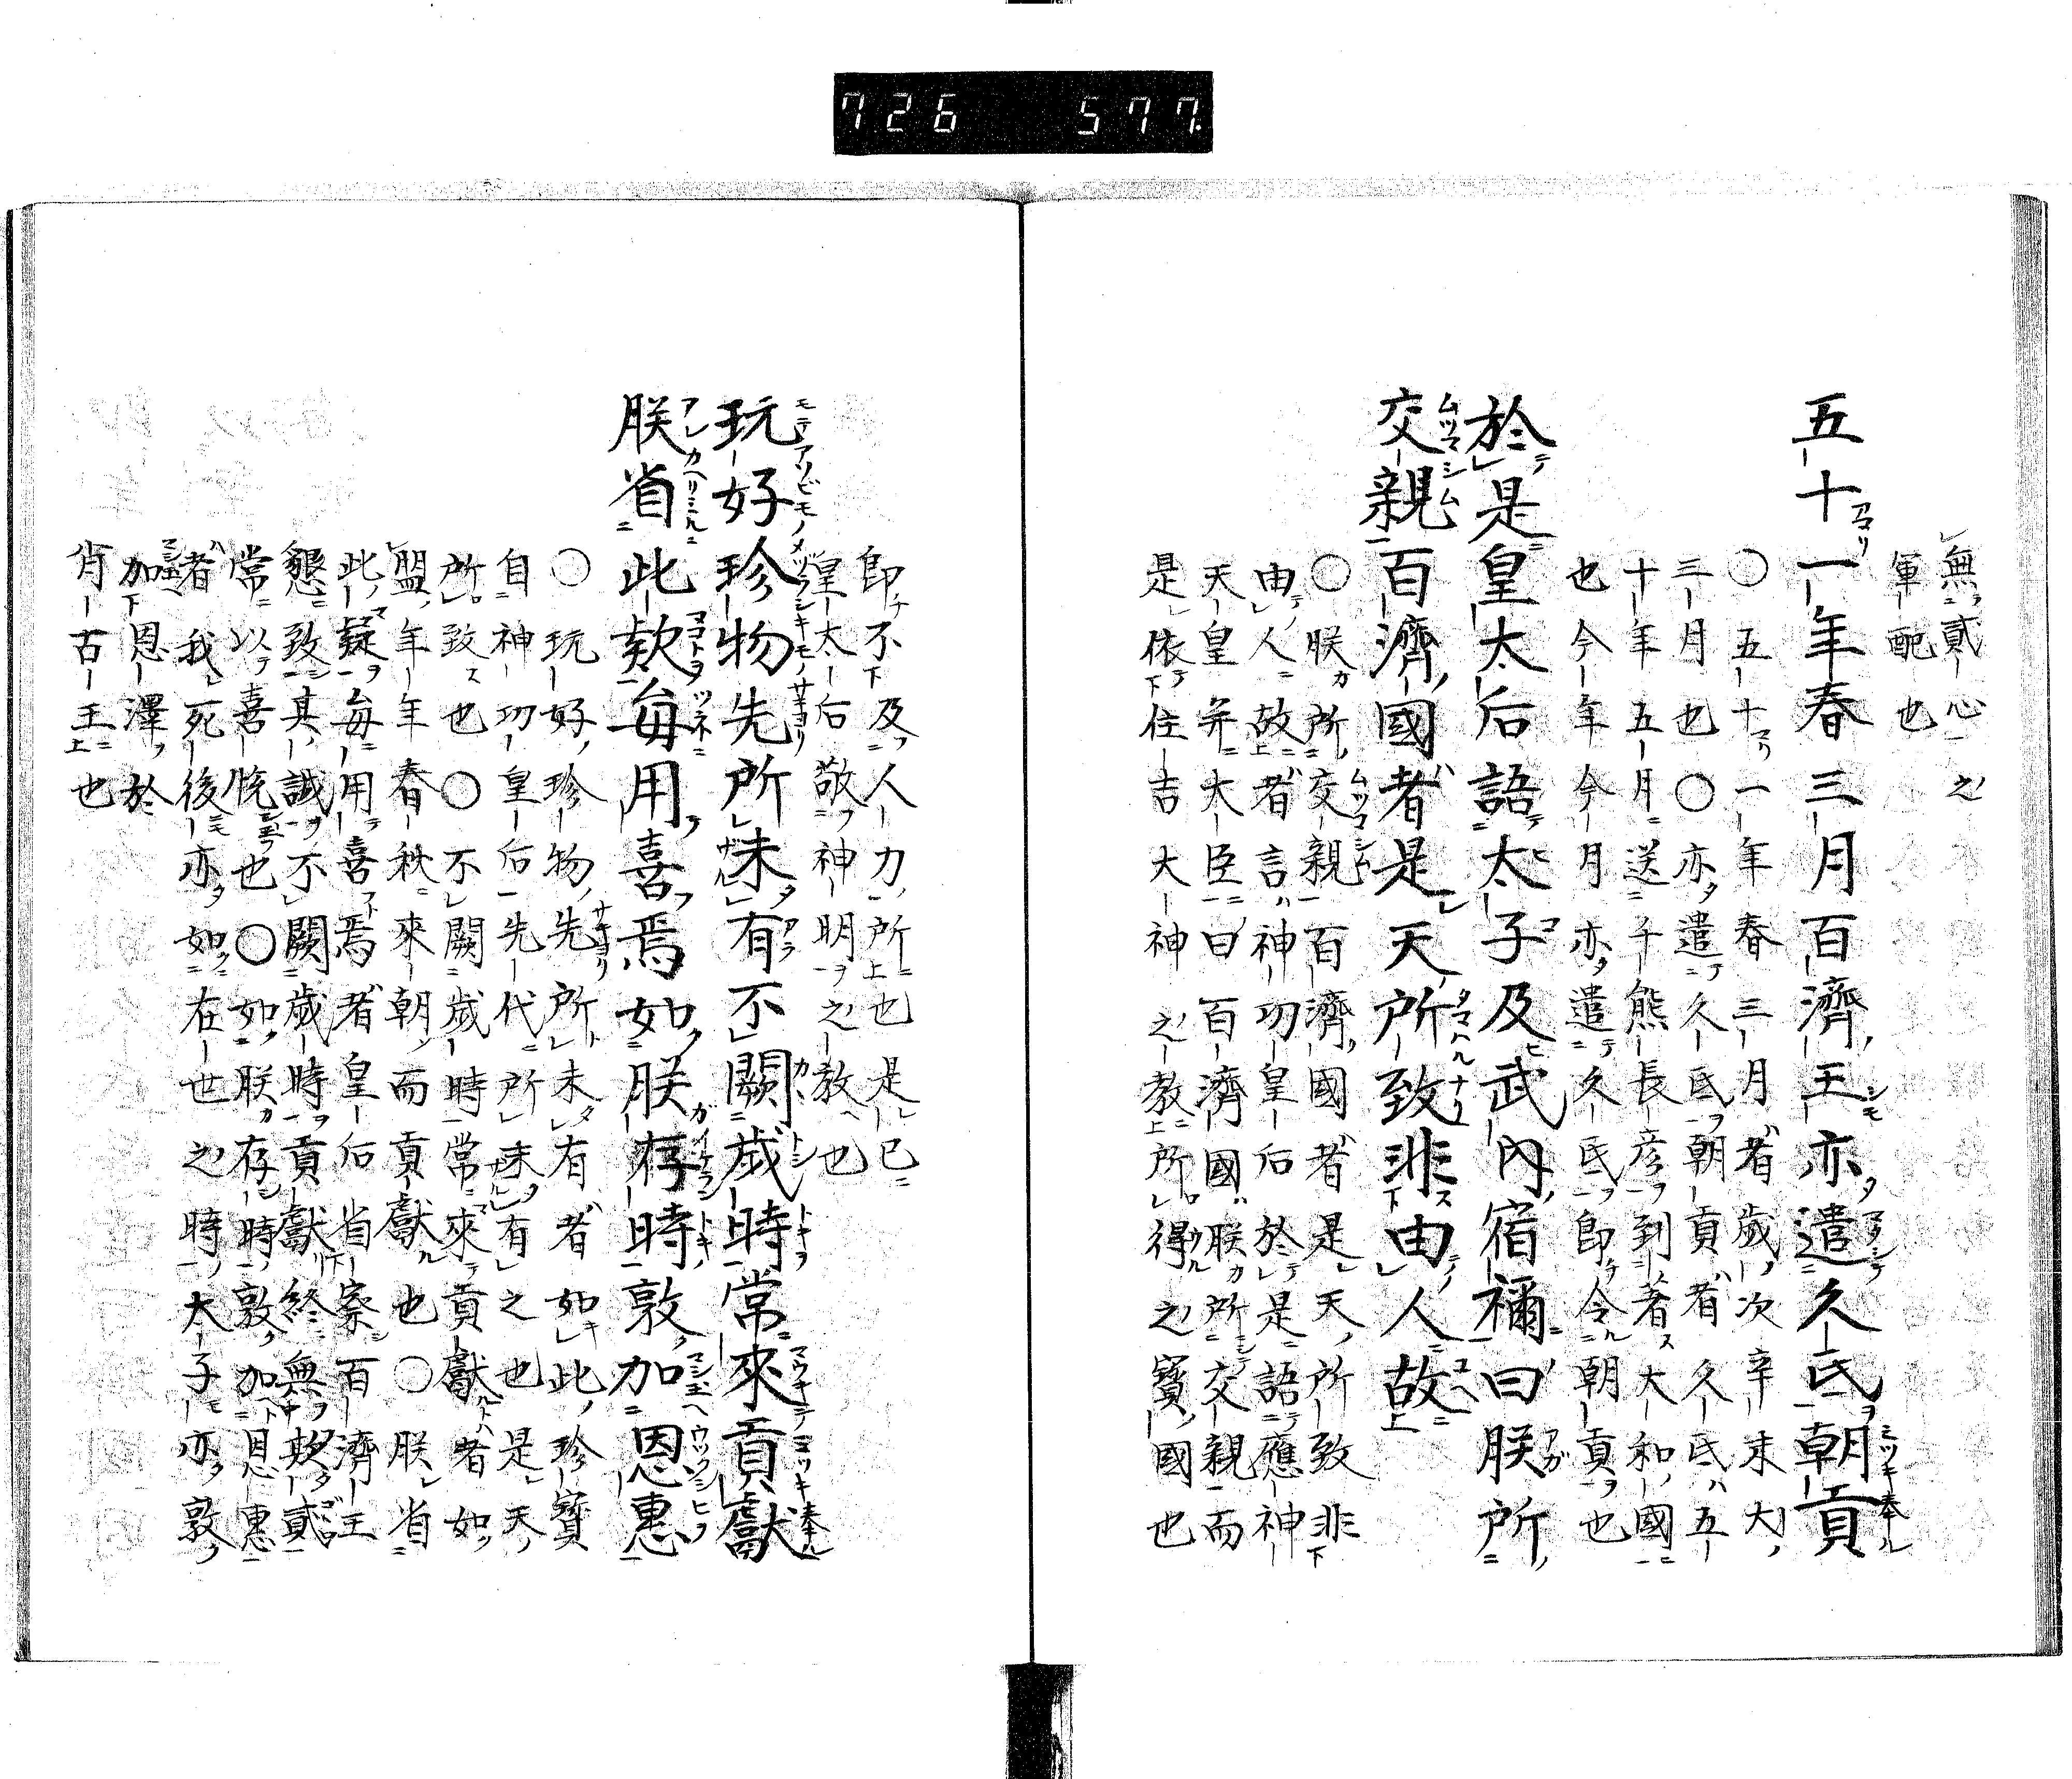 726 577.
無貳心之
軍配也
五十一年春三月百濟王亦遣久氐朝貢
○五十一年春三月者歲次辛未大
三月也○亦遣久氐朝貢者久氐五
十年五月送千熊長彦到著大和國
也今年今月亦遣久氐即令朝貢也
於是皇太后語太子及武內宿禰曰朕所
交親百濟國者是天所致非由人故
○朕所交親百濟國者是天所致非
由人故者言神功皇后於是語應神
天皇并太臣曰百濟國朕所交親而
是依住吉大神之教所得之寶國也
即不及人力所也是已
皇太后敬神明之教也
玩好珍物先所未有不闕歲時常來貢獻
朕省此欵每用喜焉如朕存時敦加恩惠
○玩好珍物先所未有者如此珍寶
自神功皇后先代所未有之也是天
所致也○不闕歲時常來貢獻者如
盟年年春秋來朝而貢獻也○朕省
此疑每用喜焉者皇后省察百濟王
懇致其誠不闕歲時貢獻終無欺貳
常以喜悅也○如朕存時敦加恩惠
者我死後亦如在世之時太子亦敦
加恩澤於
肖古王也